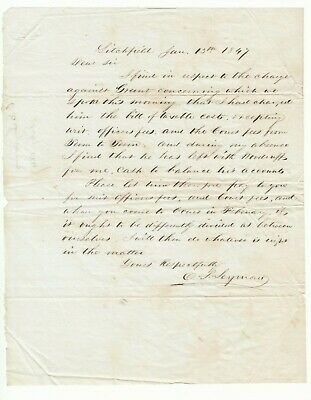 Litchfield Jan. 13th 1847
Dear Sir
I find in respect to the charge
against Grant concerning which we
spoke this morning that I had charged
him the bill of taxable costs, excepting
writ, officers fees, and the Court fees from
Term to Term. and during my absence
I find that he has left with Woodruff
for me, Cash to balance his accounts
Please let him therefore pay to you
the writ officers fees, and Court fees, and
when you come to Court in February, if
it ought to be differently divided as between
ourselves I will then do whatever is right
in the matter
Yours Respectfully
O. S. Seymour